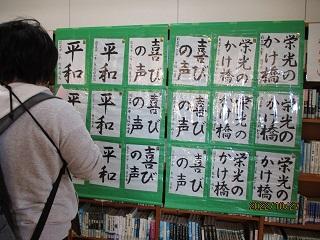 栄光の
かけ橋
栄光の
かけ橋
喜び
の声
喜び
の声
平和
平和
栄光の
かけ橋
栄光の
かけ橋
喜び
の声
喜び
の声
平和
平和
栄光の
かけ橋
栄光の
かけ橋
喜び
の声
喜び
の声
平和